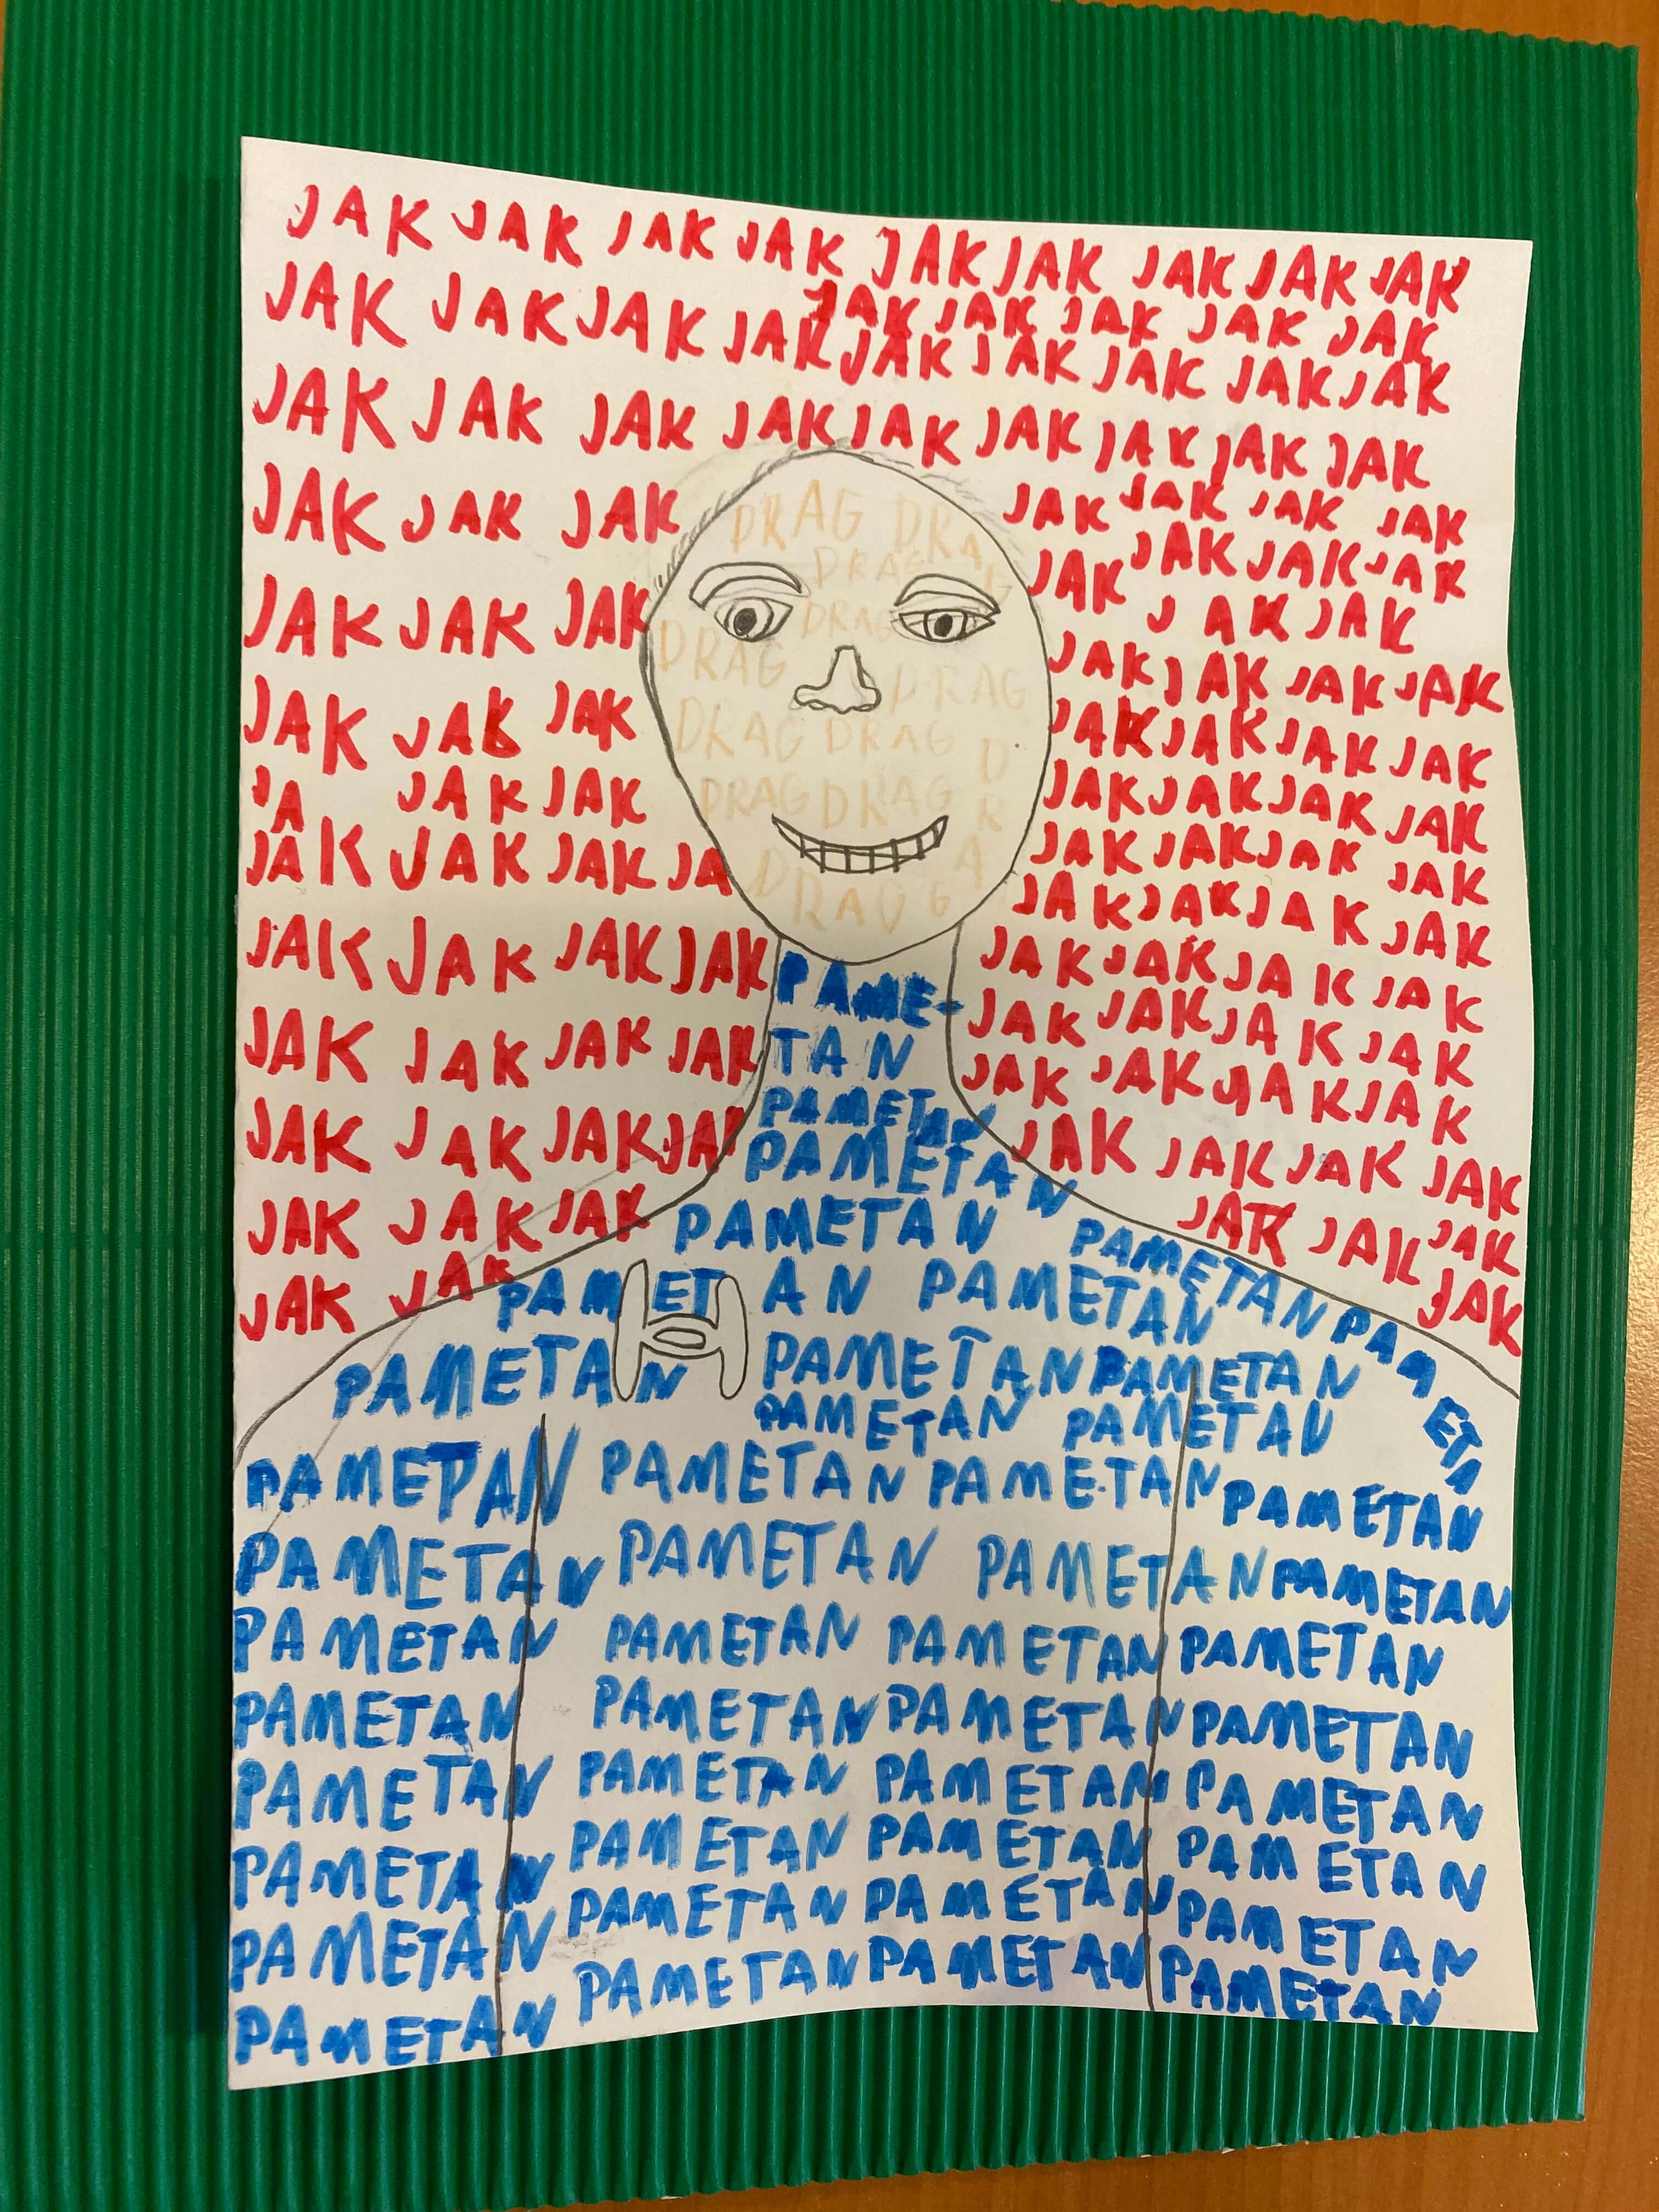 JAK JAK JAK JAK JAK JAK JAK JAK JAK
JAK JAK JAK JAK JAK
JAK JAK JAK JAK JAK JAK JAK JAK JAK
JAK JAK JAK JAK JAK JAK JAK JAK JAK
JAK JAK JAK
JAK JAK JAK
JAK JAK JAK
JA JAK JAK
JAK JAK JAK JA
JAK JAK JAK JAK
JAK JAK JAK JAK
JAK JAK JAK JAK
JAK JAK JAK
JAK JAK
DRAG DRAG
DRAG
DRAG
DRAG DRAG
DRAG DRAG
DRAG DRAG
DRAG
DRAG
JAK JAK JAK JAK
JAK JAK JAK JAK
JAK JAK
JAK JAK JAK JAK
JAK JAK JAK JAK
JAK JAK JAK JAK
JAK JAK JAK JAK
JAK JAK JAK JAK
JAK JAK JAK JAK
JAK JAK JAK JAK
JAK JAK JAK JAK
JAK JAK JAK JAK
JAK JAK JAK
JAK
PAME-
TAN
PAMETAN
PAMETAN
PAMETAN PAMETAN PAMETA
PAMETAN PAMETAN
PAMETAN PAMETAN PAMETAN
PAMETAN PAMETAN
PAMETAN PAMETAN PAMETAN PAMETAN
PAMETAN PAMETAN PAMETAN PAMETAN
PAMETAN PAMETAN PAMETAN PAMETAN
PAMETAN PAMETAN PAMETAN PAMETAN
PAMETAN PAMETAN PAMETAN PAMETAN
PAMETAN PAMETAN PAMETAN PAMETAN
PAMETAN PAMETAN PAMETAN PAMETAN
PAMETAN PAMETAN PAMETAN PAMETAN